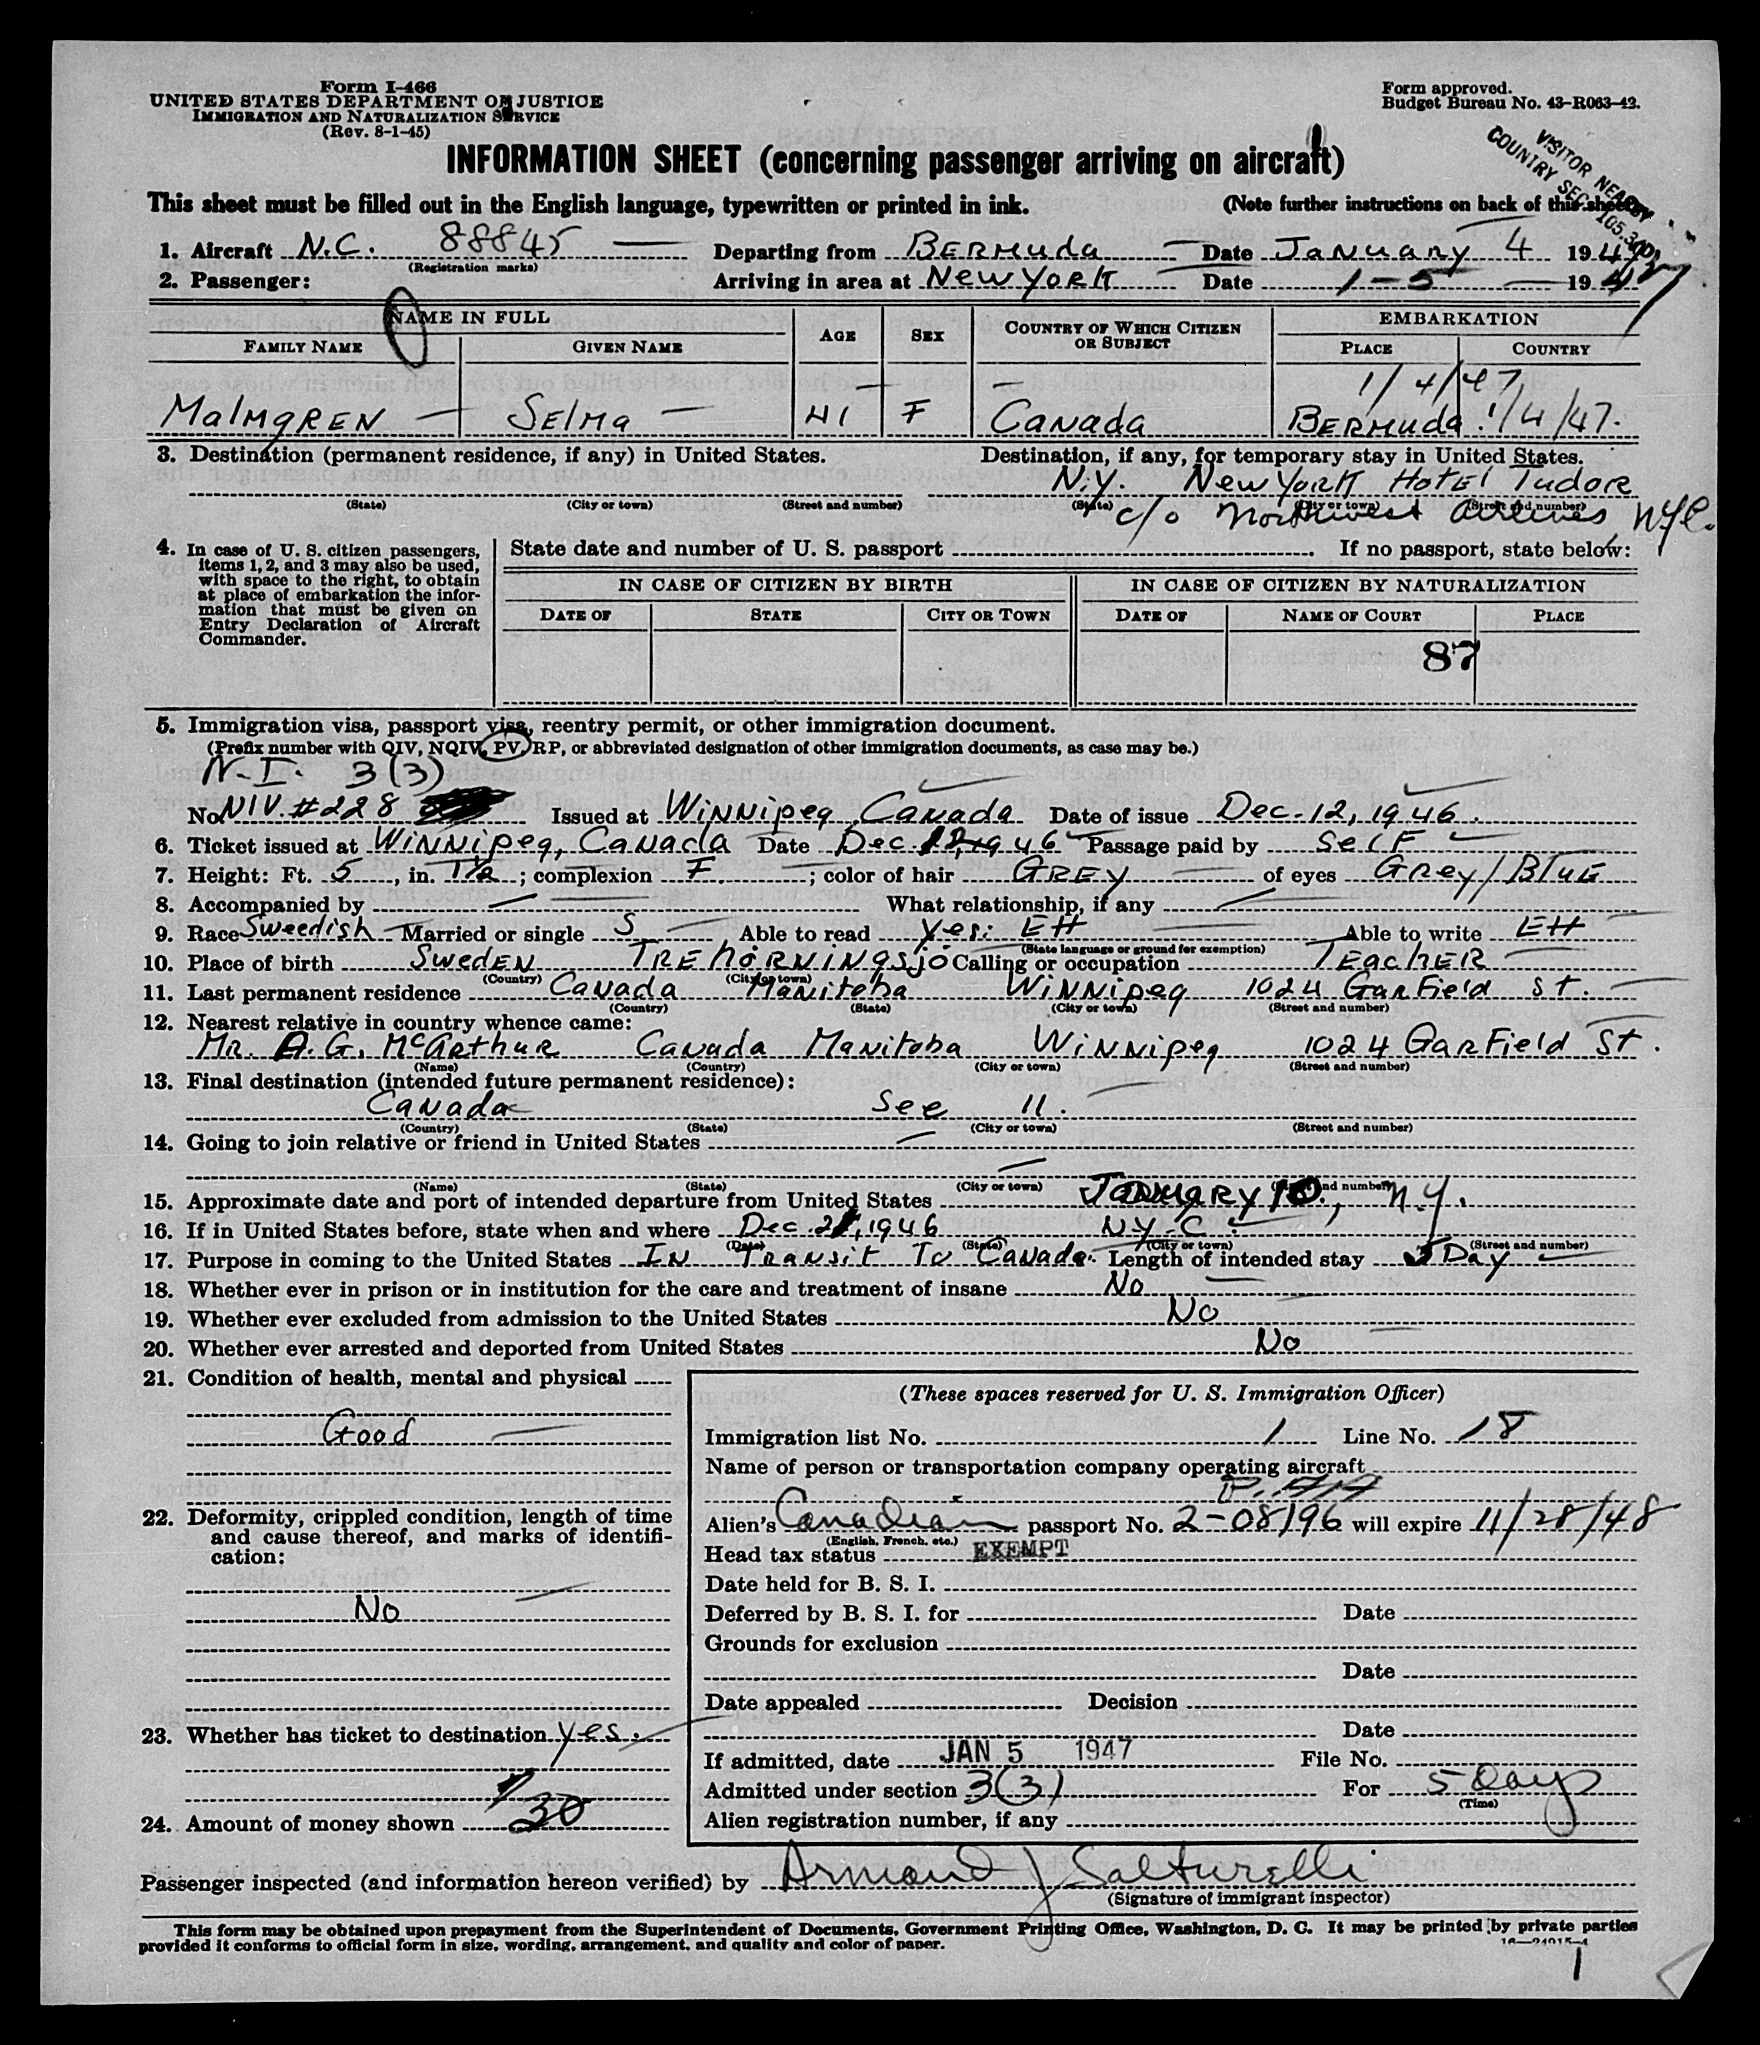 Form I-466
UNITED STATES DEPARTMENT OF JUSTICE
IMMIGRATION AND NATURALIZATION SERVICE
(Rev. 8-1-45)
Form approved.
Budget Bureau No. 43-R063-42.
INFORMATION SHEET (concerning passenger arriving on aircraft)
VISITOR NEARBY
COUNTRY SEC. 105.3
This sheet must be filled out in the English language, typewritten or printed in ink. (Note further instructions on back of this sheet)
1. Aircraft N.C. 88845 Departing from BERMUda Date JaNUARY 4 1947
(Registration marks)
2. Passenger: Arriving in area at New YORK Date 1-5 1947
NAME IN FULL AGE SEX COUNTRY OF WHICH CITIZEN OR SUBJECT EMBARKATION
FAMILY NAME GIVEN NAME PLACE COUNTRY
1/4/47
MalMgREN SElMa 41 F Canada BERMUda 1/4/47.
3. Destination (permanent residence, if any) in United States. Destination, if any, for temporary stay in United States.
N.Y. New YORK HOTEL Tudor
(State) (City or town) (Street and number) (State) (City or town) (Street and number)
c/o Northwest Airlines NYC.
4. In case of U. S. citizen passengers, items 1, 2, and 3 may also be used, with space to the right, to obtain at place of embarkation the information that must be given on Entry Declaration of Aircraft Commander.
State date and number of U. S. passport If no passport, state below:
IN CASE OF CITIZEN BY BIRTH IN CASE OF CITIZEN BY NATURALIZATION
DATE OF STATE CITY OR TOWN DATE OF NAME OF COURT PLACE
87
5. Immigration visa, passport visa, reentry permit, or other immigration document.
(Prefix number with QIV, NQIV, PV, RP, or abbreviated designation of other immigration documents, as case may be.)
N.I. 3(3)
No. NIV. #228 Issued at WiNNipeg Canada Date of issue Dec. 12, 1946.
6. Ticket issued at WiNNipeg, CaNada Date Dec. 12, 1946 Passage paid by SelF
7. Height: Ft. 5, in. 1 1/2; complexion F.; color of hair GREY of eyes GRey/BlUE
8. Accompanied by What relationship, if any
9. Race Swedish Married or single S Able to read yes: Able to write
(State language or ground for exemption)
10. Place of birth SwedEN TREhöRNiNgsjö Calling or occupation TEachER
(Country) (City or town)
11. Last permanent residence Canada Manitoba WiNNipeg 1024 GarField St.
(Country) (State) (City or town) (Street and number)
12. Nearest relative in country whence came:
MR. A.G. McARthUR Canada Manitoba WiNNipeg 1024 GarField St.
(Name) (Country) (City or town) (Street and number)
13. Final destination (intended future permanent residence):
Canada See 11.
(Country) (State) (City or town) (Street and number)
14. Going to join relative or friend in United States
(Name) (State) (City or town) (Street and number)
15. Approximate date and port of intended departure from United States JaNUARY 10, N.Y.
16. If in United States before, state when and where Dec. 21, 1946 NYC.
(Date) (State) (City or town) (Street and number)
17. Purpose in coming to the United States IN TRANsit To CaNada. Length of intended stay 5 Day
18. Whether ever in prison or in institution for the care and treatment of insane No
19. Whether ever excluded from admission to the United States No
20. Whether ever arrested and deported from United States No
21. Condition of health, mental and physical
Good
22. Deformity, crippled condition, length of time and cause thereof, and marks of identification:
No
23. Whether has ticket to destination yes.
24. Amount of money shown $30
(These spaces reserved for U. S. Immigration Officer)
Immigration list No. 1 Line No. 18
Name of person or transportation company operating aircraft
P.AA
Alien's Canadian passport No. 2-08196 will expire 11/28/48
(English, French, etc.)
Head tax status EXEMPT
Date held for B. S. I.
Deferred by B. S. I. for Date
Grounds for exclusion
Date
Date appealed Decision
Date
If admitted, date JAN 5 1947 File No.
Admitted under section 3(3) For 5 Days
(Time)
Alien registration number, if any
Passenger inspected (and information hereon verified) by Armand J Salturelli
(Signature of immigrant inspector)
This form may be obtained upon prepayment from the Superintendent of Documents, Government Printing Office, Washington, D. C. It may be printed by private parties
provided it conforms to official form in size, wording, arrangement, and quality and color of paper.
16—24915-4
1